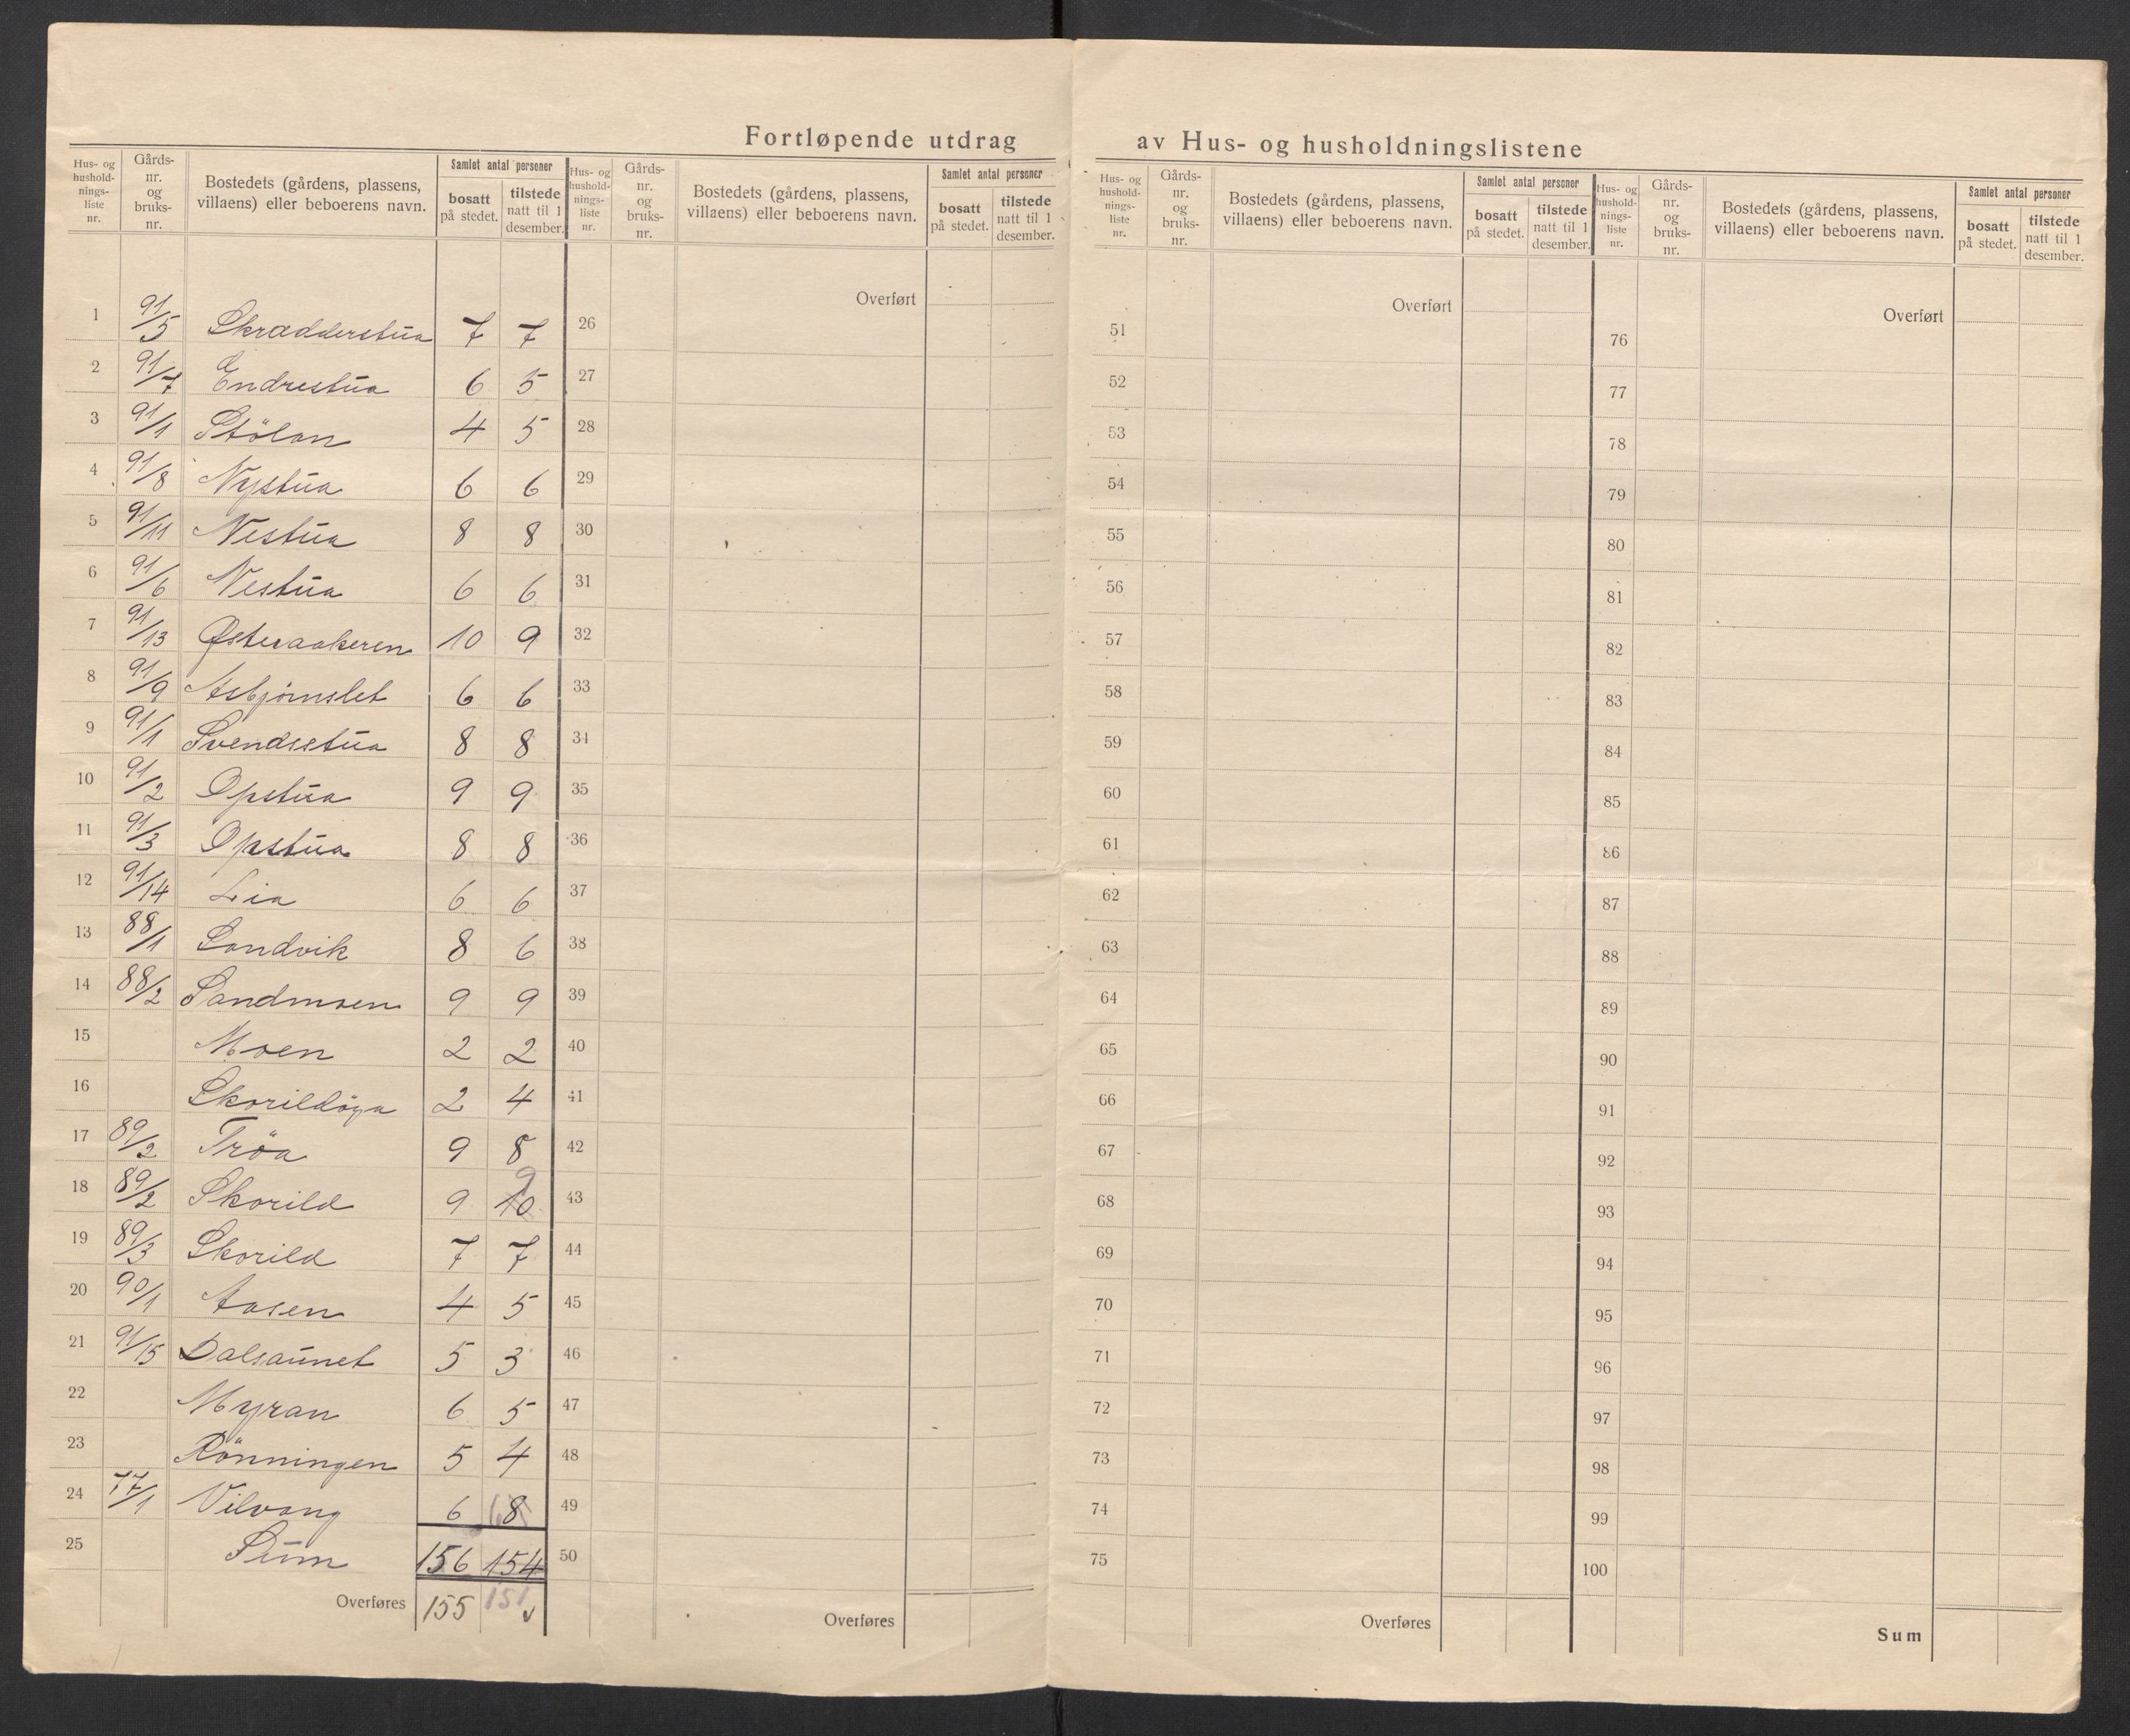 Fortløpende utdrag av Hus- og husholdningslistene
Hus- og husholdnings-liste nr. Gårds-nr. og bruks-nr. Bostedets (gårdens, plassens, villaens) eller beboerens navn. Samlet antal personer bosatt på stedet. tilstede natt til 1 desember.
1 91/5 Skrædderstua 7 7
2 91/7 Endrestua 6 5
3 91/1 Stölan 4 5
4 91/8 Nystua 6 6
5 91/11 Nestua 8 8
6 91/6 Nestua 6 6
7 91/13 Østeraakeren 10 9
8 91/9 Asbjörnslet 6 6
9 91/1 Svendsstua 8 8
10 91/2 Opstua 9 9
11 91/3 Opstua 8 8
12 91/14 Lia 6 6
13 88/1 Sandvik 8 6
14 88/2 Sandmoen 9 9
15 Moen 2 2
16 Skorildöya 2 4
17 89/2 Tröa 9 8
18 89/2 Skorild 9 10 9
19 89/3 Skorild 7 7
20 90/1 Aasen 4 5
21 91/15 Dalsaunet 5 3
22 Myran 6 5
23 Rönningen 5 4
24 77/1 Vilvang 6 8
25 Sum 156 154
Overføres 155 151
Hus- og husholdnings-liste nr. Gårds-nr. og bruks-nr. Bostedets (gårdens, plassens, villaens) eller beboerens navn. Samlet antal personer bosatt på stedet. tilstede natt til 1 desember.
Overført
26
27
28
29
30
31
32
33
34
35
36
37
38
39
40
41
42
43
44
45
46
47
48
49
50
Overføres
Hus- og husholdnings-liste nr. Gårds-nr. og bruks-nr. Bostedets (gårdens, plassens, villaens) eller beboerens navn. Samlet antal personer bosatt på stedet. tilstede natt til 1 desember.
Overført
51
52
53
54
55
56
57
58
59
60
61
62
63
64
65
66
67
68
69
70
71
72
73
74
75
Overføres
Hus- og husholdnings-liste nr. Gårds-nr. og bruks-nr. Bostedets (gårdens, plassens, villaens) eller beboerens navn. Samlet antal personer bosatt på stedet. tilstede natt til 1 desember.
Overført
76
77
78
79
80
81
82
83
84
85
86
87
88
89
90
91
92
93
94
95
96
97
98
99
100
Sum